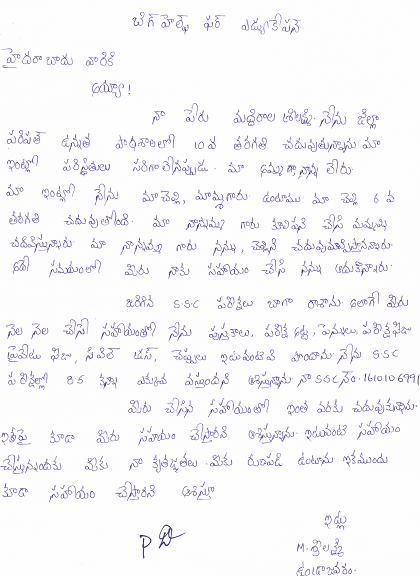 బిగ్ హెల్ప్ ఫర్ ఎడ్యుకేషన్
హైదరాబాదు వారికి
అయ్యా!
నా పేరు మద్దిరాల శ్రీలక్ష్మి. నేను జిల్లా
పరిషత్ ఉన్నత పాఠశాలలో 10వ తరగతి చదువుతున్నాను. మా
ఇంట్లో పరిస్థితులు సరిగా లేనప్పుడు. మా అమ్మా నాన్న లేరు.
మా ఇంట్లో నేను మా చెల్లి, మామ్మగారు ఉంటాము మా చెల్లి 6 వ
తరగతి చదువుతోంది. మా నాన్నమ్మ గారు కూలిపని చేసి మమ్మల్ని
చదివిస్తున్నారు. మా నాన్నమ్మ గారు నన్ను, చెల్లిని చదువుమాన్పిస్తానన్నారు.
అదే సమయంలో మీరు నాకు సహాయం చేసి నన్ను ఆదుకొన్నారు.
జరిగిన S.S.C పరీక్షలు బాగా రాశాను. అలాగే మీరు
నెల నెల చేసే సహాయంతో నేను పుస్తకాలు, పరీక్ష అట్ట, పెన్నులు, పరీక్ష ఫీజు
ప్రైవేటు ఫీజు, సివిల్ డ్రస్, చెప్పులు ఇటువంటివి పొందాను. నేను S.S.C
పరీక్షల్లో 8.5 కన్నా ఎక్కువ వస్తుందని ఆశిస్తున్నాను. నా S.S.C నెం. 1610106991
మీరు చేసిన సహాయంతో ఇంత వరకు చదువుకున్నాను.
ఇకపై కూడా మీరు సహాయం చేస్తారని ఆశిస్తున్నాను. ఇటువంటి సహాయం
చేస్తున్నందుకు మీకు నా కృతజ్ఞతలు. మీకు రుణపడి ఉంటాను. ఇకముందు
కూడా సహాయం చేస్తారని ఆశిస్తూ
ఇట్లు
M. శ్రీలక్ష్మి
ఉండాజవరం.